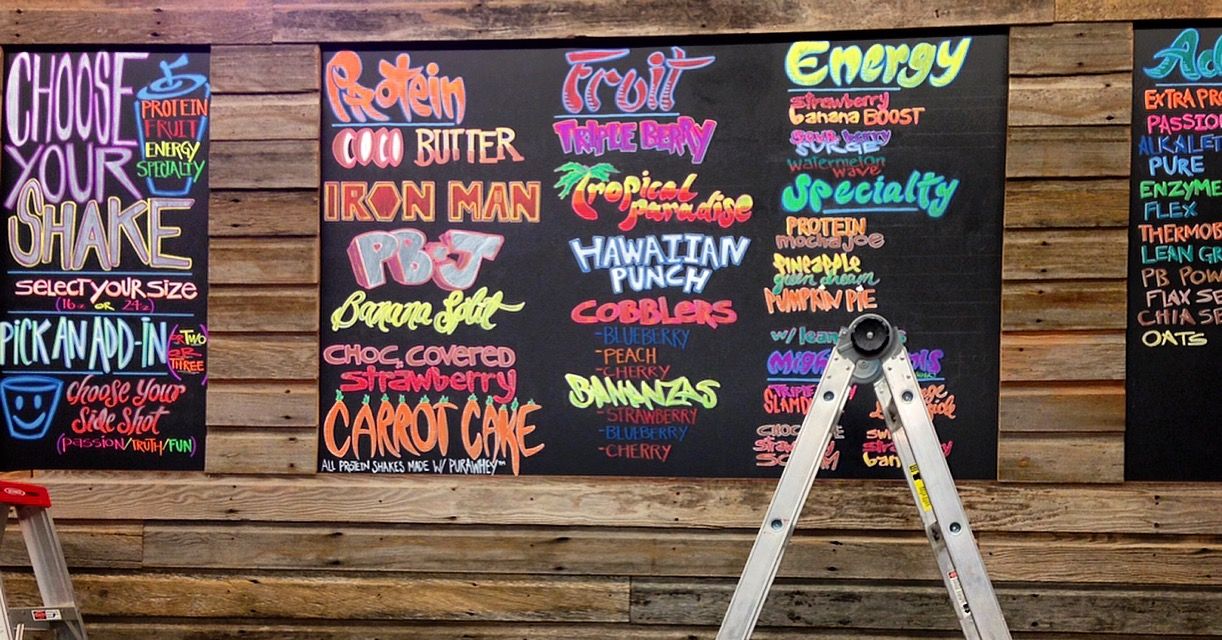 CHOOSE
YOUR
SHAKE
PROTEIN
FRUIT
ENERGY
SPECIALTY
SELECT YOUR SIZE
(16oz OR 24oz)
PICK AN ADD-IN
OR TWO
OR
THREE
Choose Your
Side Shot
(passion/TRUTH/FUN)
Protein
COCO BUTTER
IRON MAN
PB&J
Banana Split
CHOC. COVERED
Strawberry
CARROT CAKE
ALL PROTEIN SHAKES MADE W/ PURAWHEY™
Fruit
TRIPLE BERRY
Tropical
paradise
HAWAIIAN
PUNCH
COBBLERS
-BLUEBERRY
-PEACH
-CHERRY
BANANZAS
-STRAWBERRY
-BLUEBERRY
-CHERRY
Energy
strawberry
banana BOOST
SOUR berry
SURGE
watermelon
wave
Specialty
PROTEIN
mocha joe
Pineapple
green dream
PUMPKIN PIE
w/ lean
TRIPLE
SLAM
CHOC
Straw
EXTRA PRO
PASSION
ALKALET
PURE
ENZYME
FLEX
THERMOB
LEAN GR
PB POW
FLAX SE
CHIA SE
OATS